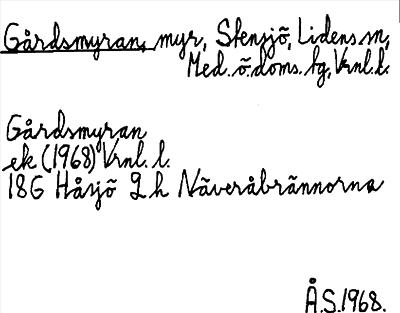 Gårdsmyran, myr, Stensjö, Lidens sn,
Med. ö. doms. tg, Vrnl. l.
Gårdsmyran
ek (1968) Vrnl. l.
18G Håsjö 2 h Näveråbrännorna
Å.S. 1968.